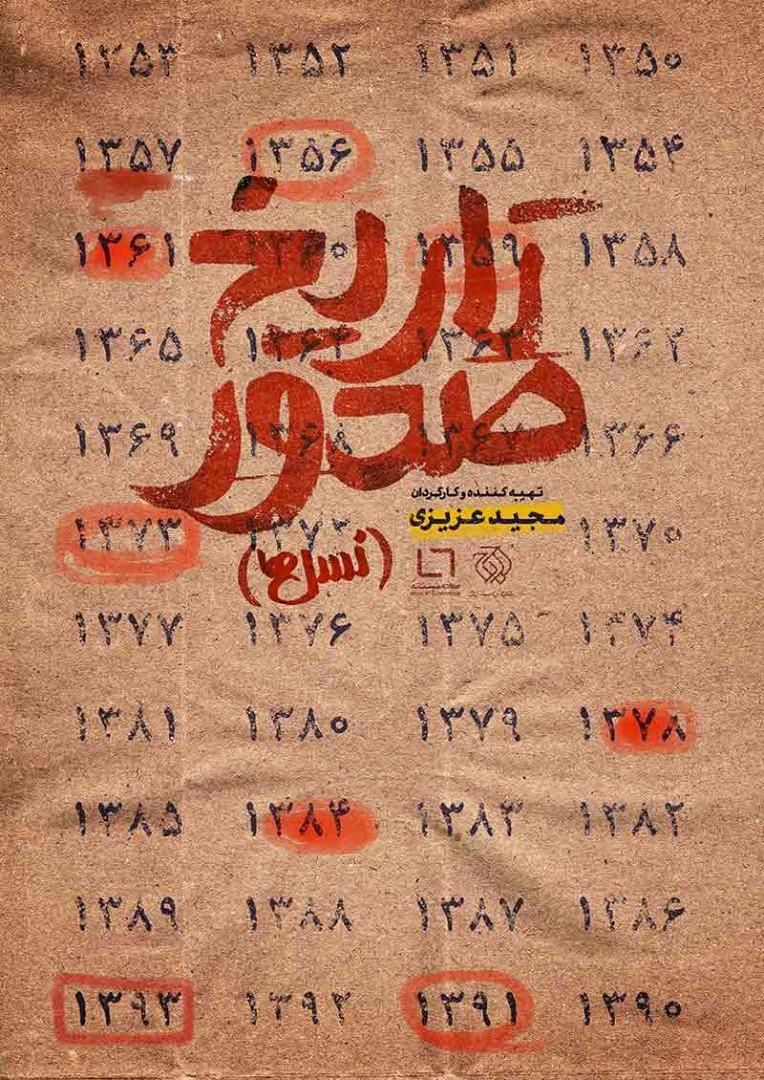 ۱۳۵۰ ۱۳۵۱ ۱۳۵۲ ۱۳۵۳
۱۳۵۴ ۱۳۵۵ ۱۳۵۶ ۱۳۵۷
۱۳۵۸ ۱۳۵۹ ۱۳۶۰ ۱۳۶۱
تاریخ
۱۳۶۲ ۱۳۶۳ ۱۳۶۴ ۱۳۶۵
صدور
۱۳۶۶ ۱۳۶۷ ۱۳۶۸ ۱۳۶۹
تهیه کننده و کارگردان
مجید عزیزی
۱۳۷۰ ۱۳۷۲ ۱۳۷۳
(نسل ها)
۱۳۷۴ ۱۳۷۵ ۱۳۷۶ ۱۳۷۷
۱۳۷۸ ۱۳۷۹ ۱۳۸۰ ۱۳۸۱
۱۳۸۲ ۱۳۸۳ ۱۳۸۴ ۱۳۸۵
۱۳۸۶ ۱۳۸۷ ۱۳۸۸ ۱۳۸۹
۱۳۹۰ ۱۳۹۱ ۱۳۹۲ ۱۳۹۳